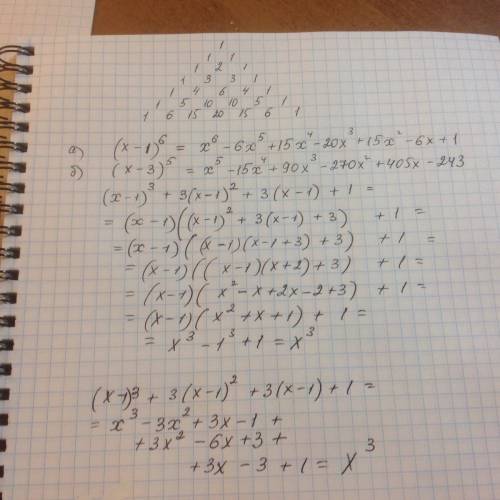 1
1 1
1 2 1
1 3 3 1
1 4 6 4 1
1 5 10 10 5 1
1 6 15 20 15 6 1
а) (x-1)⁶ = x⁶ - 6x⁵ + 15x⁴ - 20x³ + 15x² - 6x + 1
б) (x-3)⁵ = x⁵ - 15x⁴ + 90x³ - 270x² + 405x - 243
(x-1)³ + 3(x-1)² + 3(x-1) + 1 =
= (x-1)((x-1)² + 3(x-1) + 3) + 1 =
= (x-1)((x-1)(x-1+3) + 3) + 1 =
= (x-1)((x-1)(x+2) + 3) + 1 =
= (x-1)(x² - x + 2x - 2 + 3) + 1 =
= (x-1)(x² + x + 1) + 1 =
= x³ - 1³ + 1 = x³
(x-1)³ + 3(x-1)² + 3(x-1) + 1 =
= x³ - 3x² + 3x - 1 +
+ 3x² - 6x + 3 +
+ 3x - 3 + 1 = x³